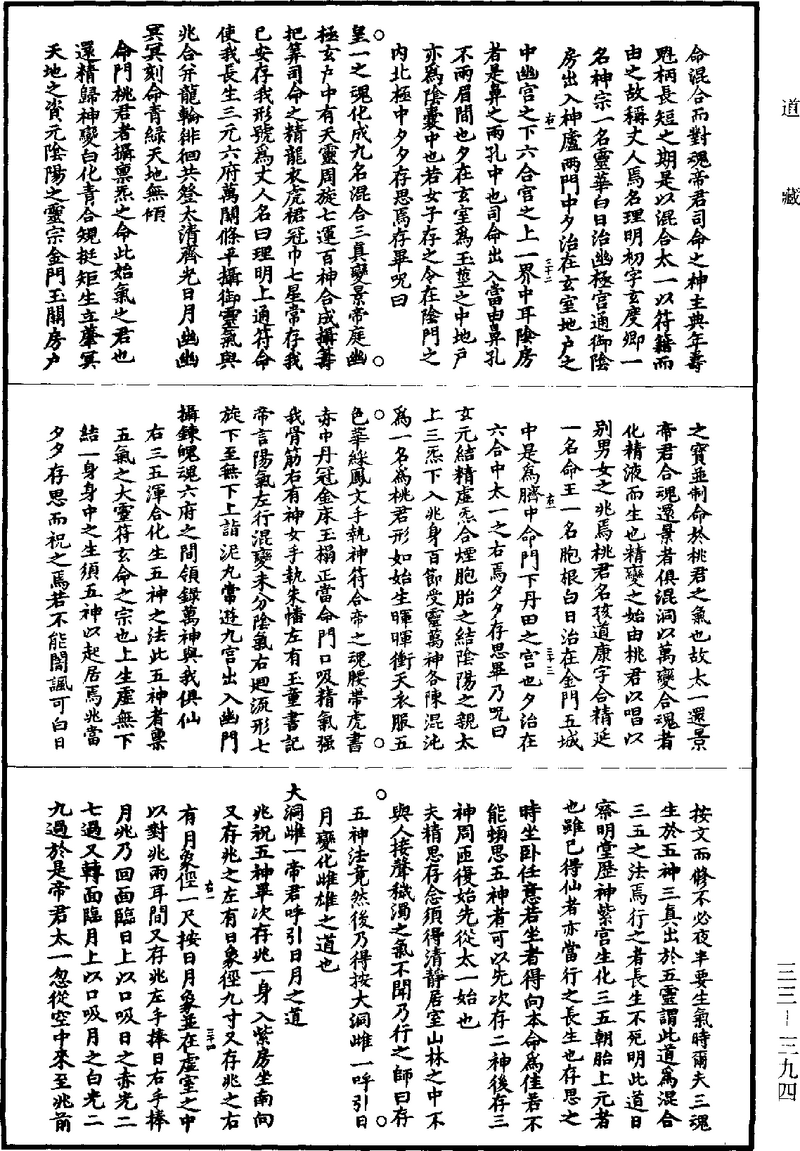 道藏
命混合而對魂帝君司命之神主典年壽
魁柄長短之期是以混合太一以符籍而
由之故稱丈人焉名理明初字玄度卿一
名神宗一名靈華白日治幽極宮通御陰
房出入神廬兩門中夕治在玄室地戶之
中幽宮之下六合宮之上一界中耳陰房
者是鼻之兩孔中也司命出入當由鼻孔
不兩眉間也夕在玄室為玉莖之中地戶
亦為陰囊中也若女子存之令在陰門之
內北極中夕夕存思焉存畢呪曰
皇一之魂化成九名混合三真變景帝庭幽
極玄戶中有天靈周旋七運百神合成攝籌
把筭司命之精龍衣虎裙冠巾七星常存我
已安存我形號為丈人名曰理明上通符命
使我長生三元六府萬關條平攝御靈氣與
兆合并龍輪徘徊共登太清齊光日月幽幽
冥冥刻命青綠天地無傾
命門桃君者攝稟炁之命此始氣之君也
還精歸神變白化青合規挺矩生立肇冥
天地之資元陰陽之靈宗金門玉關房戶
之寶並制命於桃君之氣也故太一還景
帝君合魂還景者俱混洞以萬變合魂者
化精液而生也精變之始由桃君以唱以
別男女之兆焉桃君名孩道康字合精延
一名命王一名胞根白日治在金門五城
中是為臍中命門下丹田之宮也夕治在
六合中太一之右焉夕夕存思畢乃呪曰
女元結精虛炁合煙胞胎之結陰陽之親太
上三炁下入兆身百節受靈萬神各陳混沌
為一名為桃君形如始生暉暉衝天衣服五
色華綵鳳文手執神符合帝之魂腰帶虎書
赤巾丹冠金床玉榻正當命門口吸精氣強
我骨筋右有神女手執朱幡左有玉童書記
帝言陽氣左行混變未分陰氣右迴流形七
旋下至無下上詣泥丸當遊九宮出入幽門
攝鍊魄魂六府之間領錄萬神與我俱仙
右三五渾合化生五神之法此五神者稟
五氣之大靈符玄命之宗也上生虛無下
結一身身中之生須五神以起居焉兆當
夕夕存思而祝之焉若不能闇諷可白日
按文而修不必夜半要生氣時爾夫三魂
生於五神三真出於五靈謂此道為混合
三五之法焉行之者長生不死明此道日
察明堂歷神紫宮生化三五朝胎上元者
也雖已得仙者亦當行之長生也存思之
時坐臥任意若坐者得向本命為佳若不
能頓思五神者可以先次存二神後存三
神周匝復始先從太一始也
夫精思存念須得清靜居室山林之中不
與人接聲穢濁之氣不聞乃行之師曰存
五神法竟然後乃得按大洞雌一呼引日
月變化雌雄之道也
大洞雌一帝君呼引日月之道
兆祝五神畢次存兆一身入紫房坐南向
又存兆之左有日象徑九寸又存兆之右
有月象徑一尺按日月象並在虛室之中
以對兆兩耳間又存兆左手捧日右手捧
月兆乃回面臨日上以口吸日之赤光二
七過又轉面臨月上以口吸月之白光二
九過於是帝君太一忽從空中來至兆前
右一
三十二
右一
三十三
右一
三十四
三三—三九四